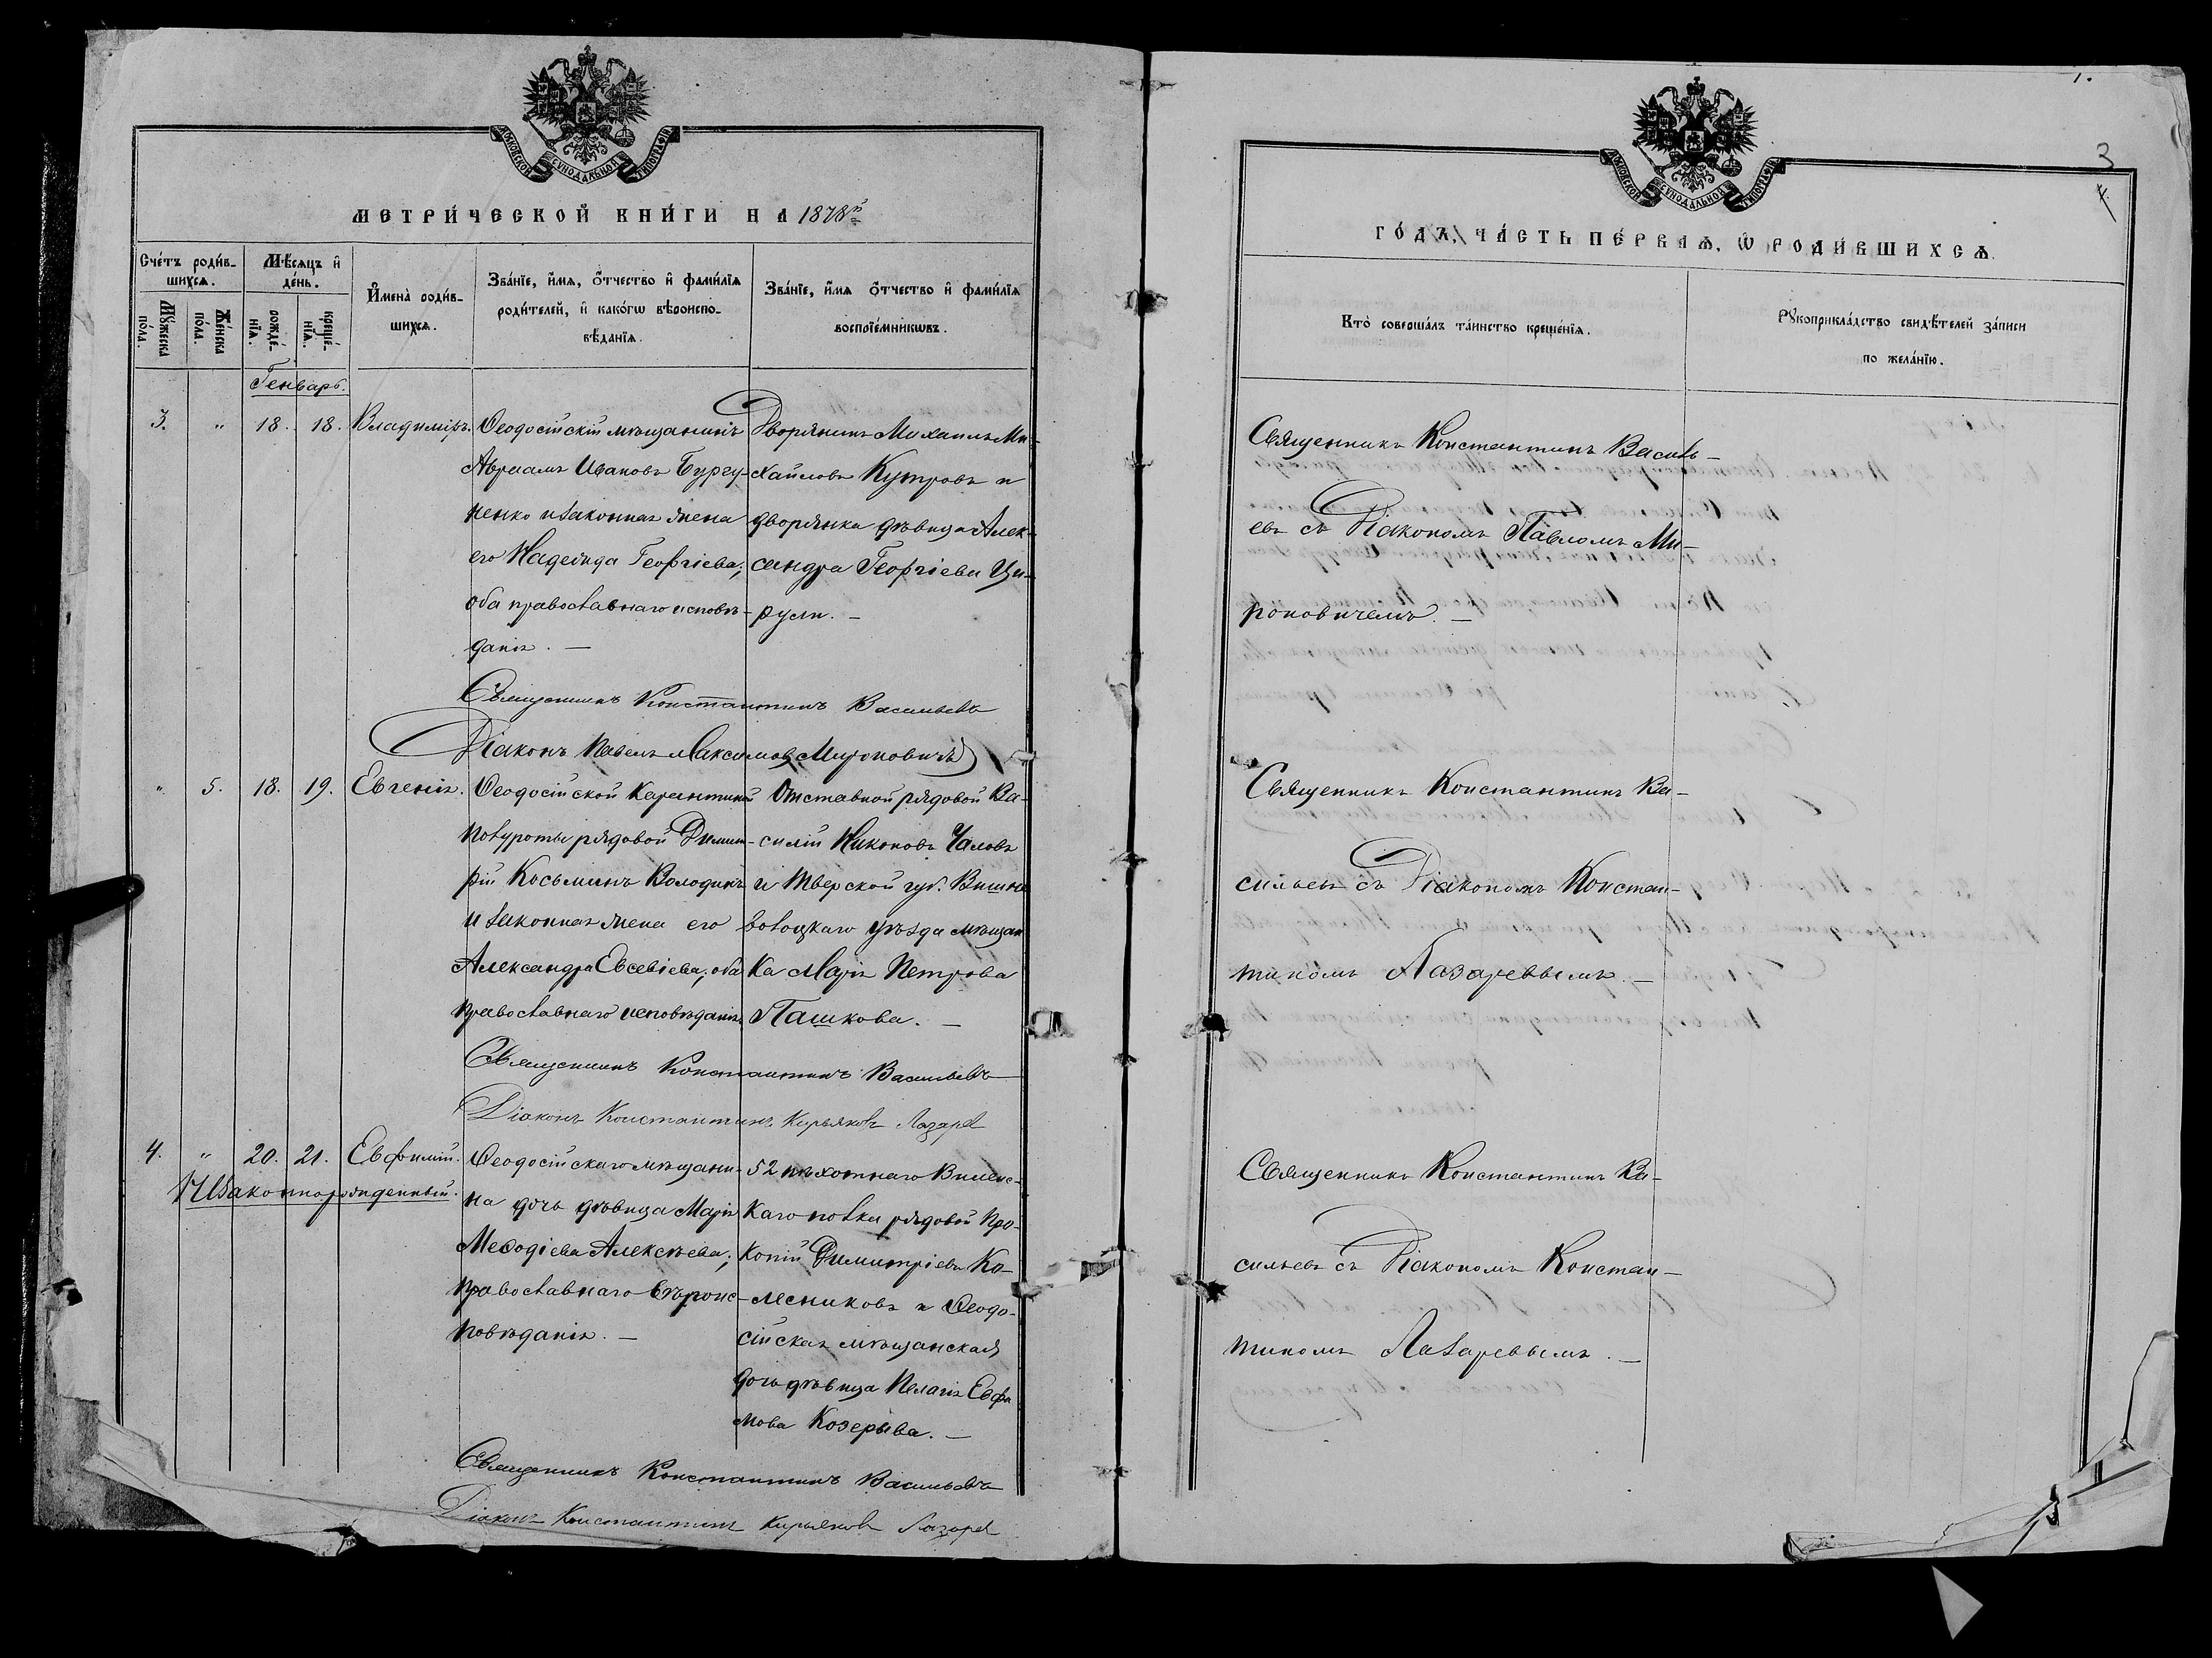 МОСКОВСКОЙ СѴНОДАЛЬНОЙ ТИПОГРАФІИ
МЕТРИ́ЧЕСКОЙ КНИ́ГИ НА 1878й
Сче́тъ роди́в-
шихсѧ.
Мѣ́сѧцъ и҆
де́нь.
Мꙋ́жеска
по́ла.
Же́нска
по́ла.
рожде́-
нїѧ.
креще́-
нїѧ.
И҆мена̀ роди́в-
шихсѧ.
Зва́нїе, и҆́мѧ, ѻ҆́тчество и҆ фами́лїѧ
роди́телей, и҆ како́гѡ вѣроиспо-
вѣ́данїѧ.
Зва́нїе, и҆́мѧ ѻ҆́тчество и҆ фами́лїѧ
воспрїе́мникѡвъ.
Генварь.
3. " 18. 18. Владиміръ.
Ѳеодосійскій мѣщанинъ
Авраамъ Ивановъ Бургу-
ненко и законная жена
его Надежда Георгіева;
оба православнаго исповѣ-
данія. —
Дворянинъ Михаилъ Ми-
хайловъ Кутровъ и
дворянка дѣвица Алек-
сандра Георгіева Ци-
рули. —
Священникъ Константинъ Васильевъ
Діаконъ Павелъ Максимовъ Мироновичъ
" 5. 18. 19. Евгенія.
Ѳеодосійской карантинной
полуроты рядовой Димит-
рій Косьминъ Володинъ
и законная жена его
Александра Евсевіева; оба
православнаго исповѣданія.
Отставной рядовой Ва-
силій Никоновъ Чаловъ
и Тверской губ. Вышне
волоцкаго уѣзда мѣщан
ка Марія Петрова
Пашкова. —
Священникъ Константинъ Васильевъ
Діаконъ Константинъ Кирьяковъ Лазаревъ
4. " 20. 21. Евфимій.
Незаконнорожденный.
Ѳеодосійскаго мѣщани-
на дочь дѣвица Марія
Меѳодіева Алексѣева;
православнаго вѣроис-
повѣданія. —
52 пѣхотнаго Виленс-
каго полка рядовой Про-
копій Димитріевъ Ко-
лесниковъ и Ѳеодо-
сійская мѣщанская
дочь дѣвица Пелагія Евфи
мова Козерыва. —
Священникъ Константинъ Васильевъ
Діаконъ Константинъ Кирьяковъ Лазаревъ
1.
3
4.
МОСКОВСКОЙ СѴНОДАЛЬНОЙ ТИПОГРАФІИ
ГО́ДЪ, ЧА́СТЬ ПЕ́РВАѦ, Ѡ РОДИ́ВШИХСѦ.
Кто̀ соверша́лъ та́инство креще́нїѧ.
Рꙋкоприкла́дство свидѣ́телей за́писи
по жела́нїю.
Священникъ Константинъ Василь-
евъ съ Діакономъ Павломъ Ми-
роновичемъ. —
Священникъ Константинъ Ва-
сильевъ съ Діакономъ Констан-
тиномъ Лазаревымъ. —
Священникъ Константинъ Ва-
сильевъ съ Діакономъ Констан-
тиномъ Лазаревымъ. —